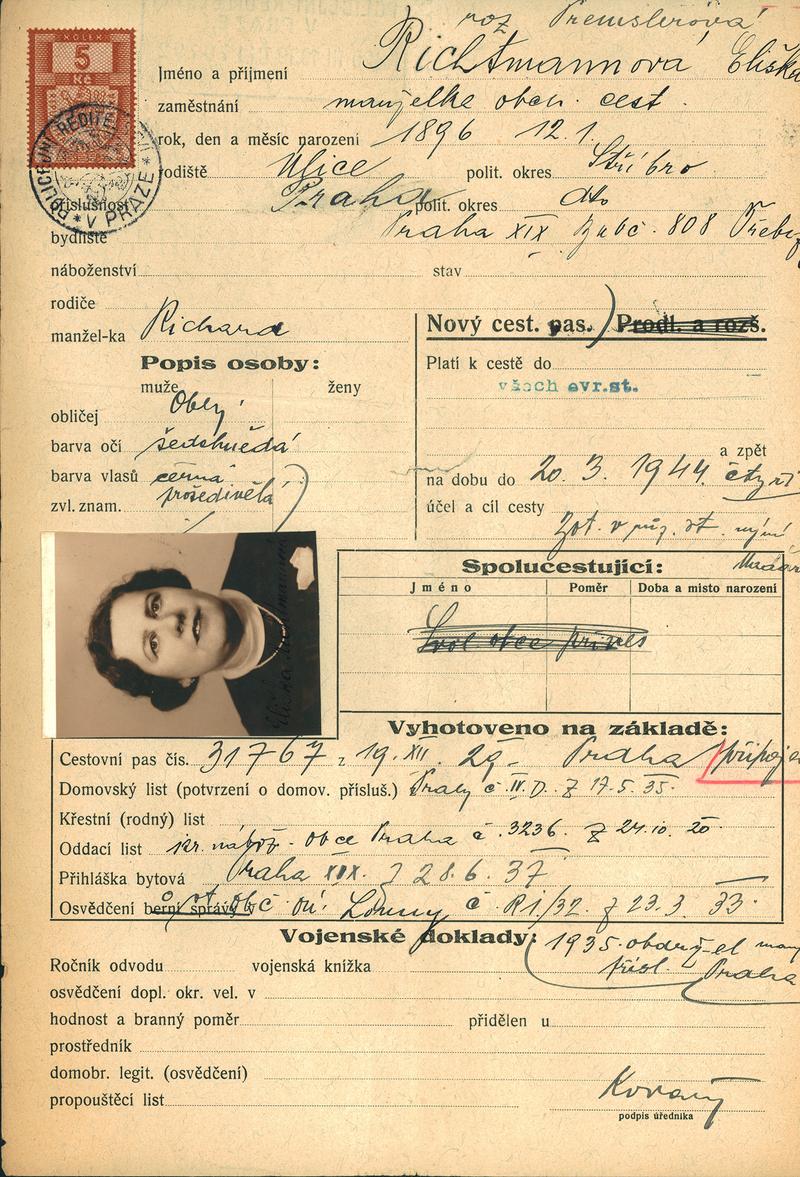 roz Premslerová
KOLEK
5
Kč
Richtmannová Eliška
Jméno a příjmení
zaměstnání manželka obch. cest.
rok, den a měsíc narození 1896 12.1.
rodiště Ulice polit. okres Stříbro
POLICEJNÍ ŘEDITELSTVÍ * V PRAZE *
příslušnost Praha polit. okres dto
bydliště Praha XIX 808
náboženství stav
rodiče
manžel-ka Richard
Nový cest. pas.) Prodl. a rozš.
Popis osoby:
Platí k cestě do
všech evr.st.
muže ženy
obličej Oblý
barva očí šedohnědá
a zpět
barva vlasů černá
prošedivělá
na dobu do 20. 3. 1944. čtyři
zvl. znam.
účel a cíl cesty
Žot. v
Spolucestující:
Jméno Poměr Doba a místo narození
Svol obce
Vyhotoveno na základě:
Cestovní pas čís. 31767 z 19. XII. 29 Praha připoje
Domovský list (potvrzení o domov. přísluš.) Prahy č IV.D. Z 17.5.35.
Křestní (rodný) list
Oddací list isr. nábož. obce Praha č. 3236. Z 24.10.20
Přihláška bytová Praha XIX. Z 28.6.37
Osvědčení berní správy v ou. Louny č R1/32. z 23.3.33.
Vojenské doklady:
1935 obdržel
přísl. Praha
Ročník odvodu vojenská knížka
osvědčení dopl. okr. vel. v
hodnost a branný poměr přidělen u
prostředník
domobr. legit. (osvědčení)
propouštěcí list
podpis úředníka